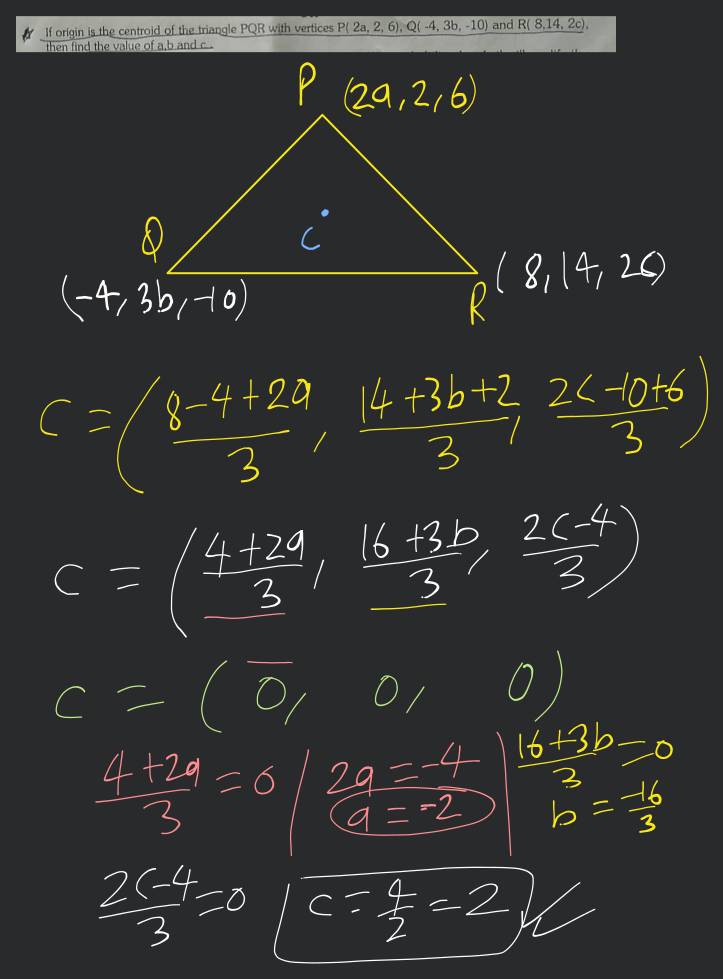 If origin is the centroid of the triangle PQR with vertices P( 2a, 2, 6), Q( -4, 3b, -10) and R( 8,14, 2c),
then find the value of a,b and c.
P (2a, 2, 6)
Q
C
(-4, 3b, -10)
R
(8, 14, 2c)
C = ( (8-4+2a)/3, (14+3b+2)/3, (2c-10+6)/3 )
C = ( (4+2a)/3, (16+3b)/3, (2c-4)/3 )
C = ( 0, 0, 0)
(4+2a)/3 = 0 | 2a = -4 | (16+3b)/3 = 0
a = -2 b = -16/3
(2c-4)/3 = 0 c = 4/2 = 2